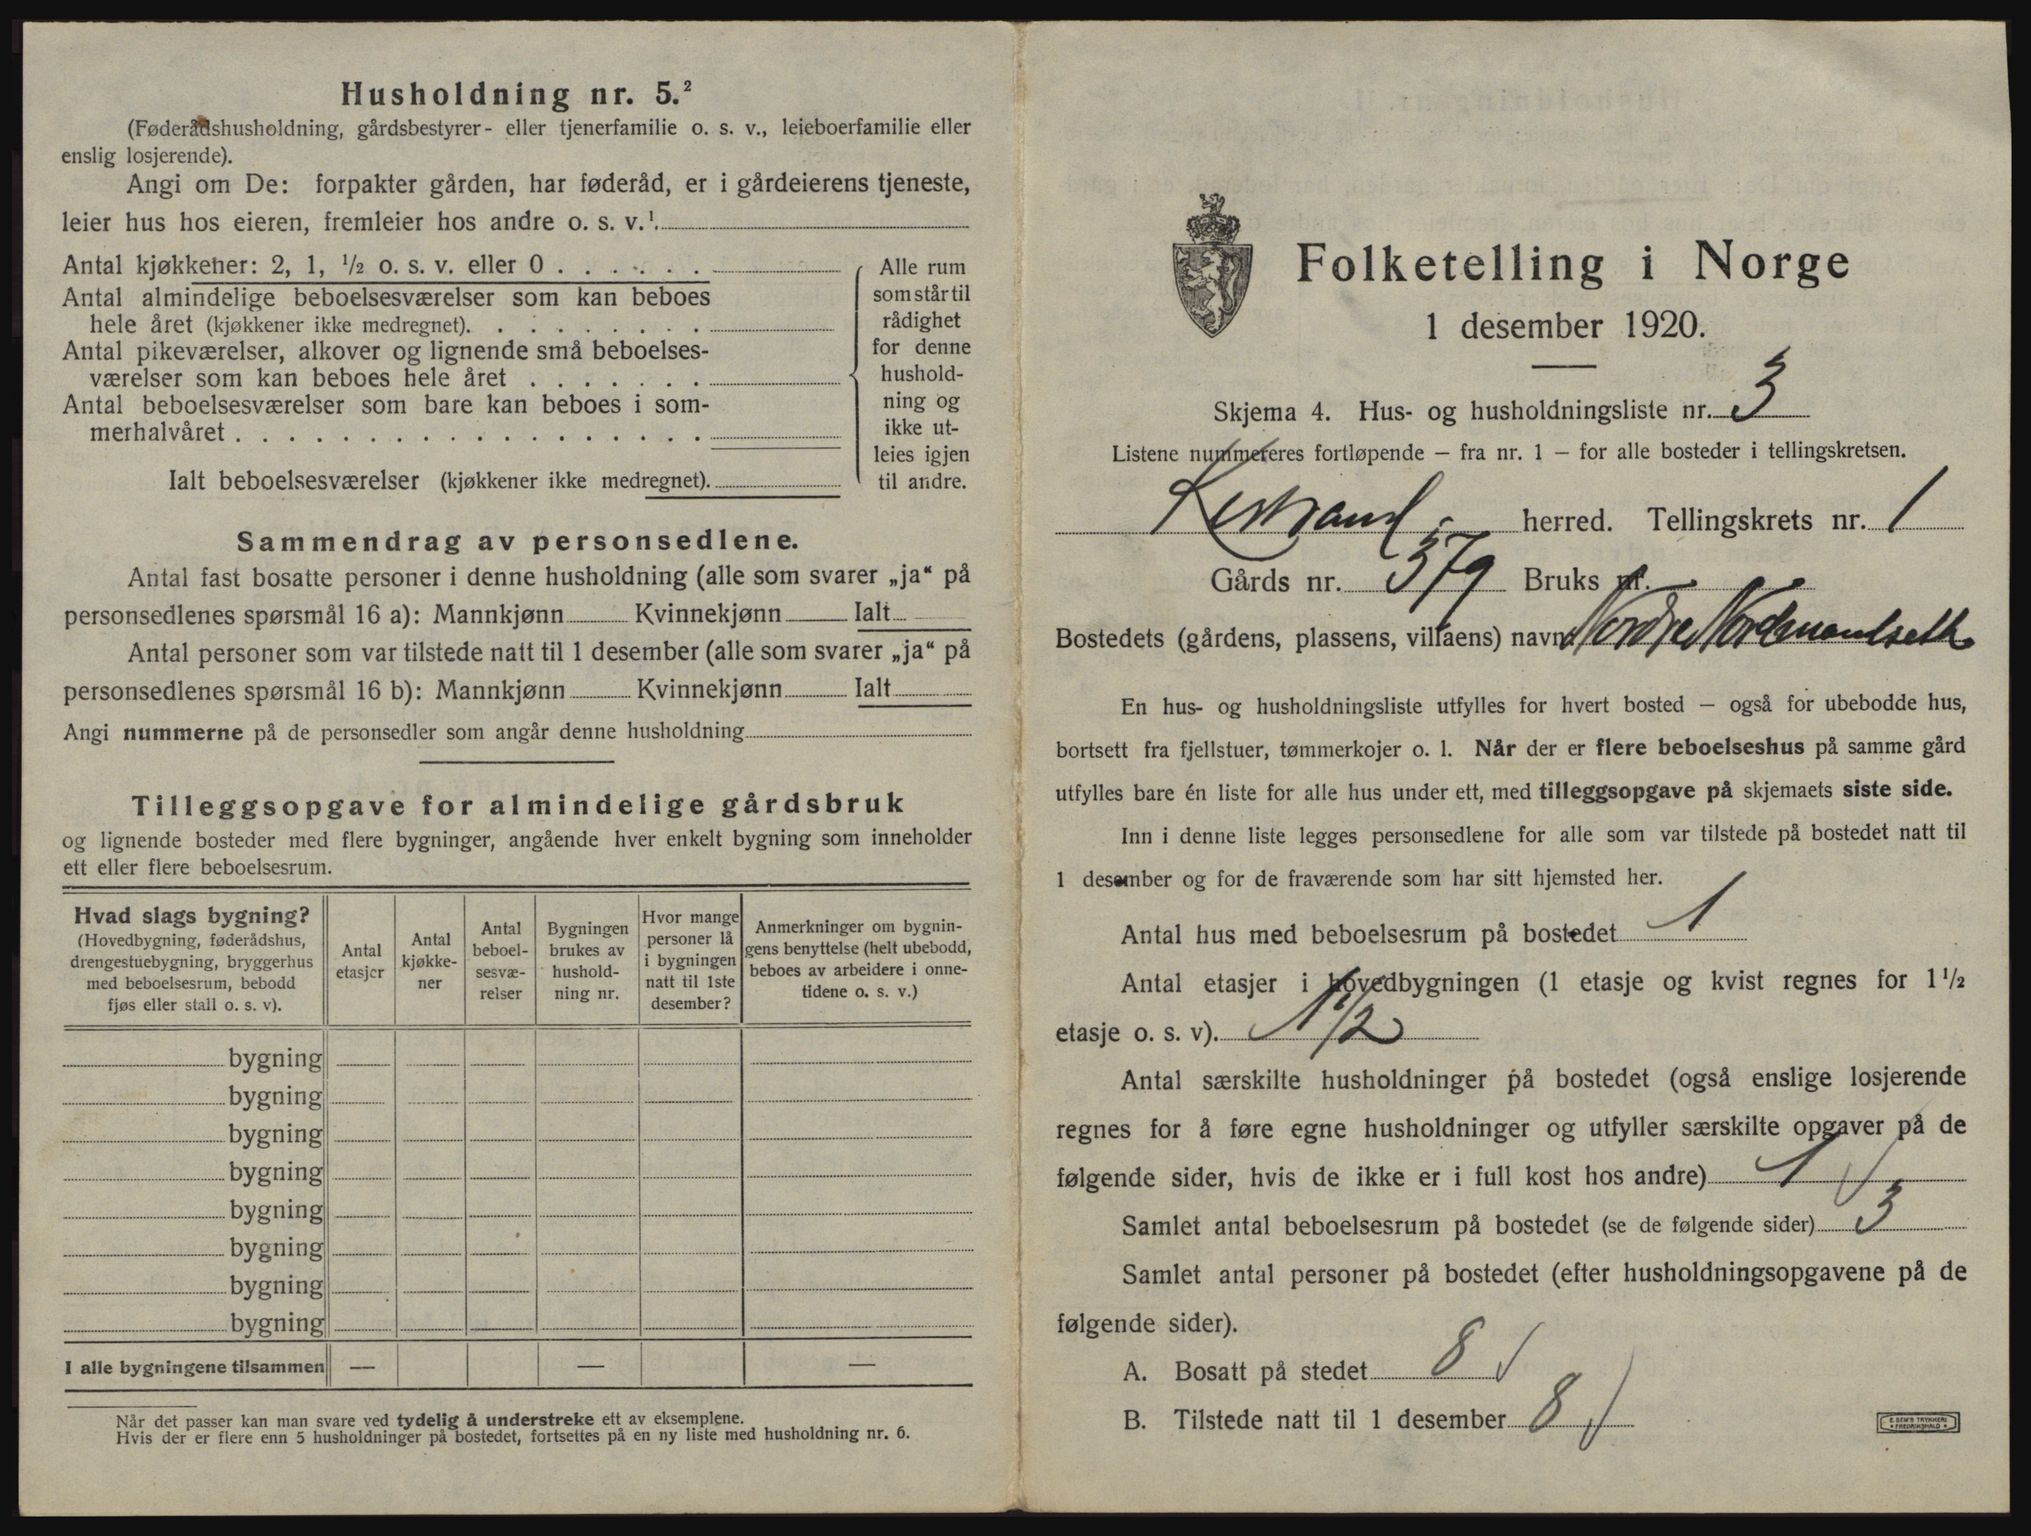 Husholdning nr. 5.²
(Føderådshusholdning, gårdsbestyrer- eller tjenerfamilie o. s. v., leieboerfamilie eller
enslig losjerende).
Angi om De: forpakter gården, har føderåd, er i gårdeierens tjeneste,
leier hus hos eieren, fremleier hos andre o. s. v.¹.
Antal kjøkkener: 2, 1, ½ o. s. v. eller 0 . . . . . .
Antal almindelige beboelsesværelser som kan beboes
hele året (kjøkkener ikke medregnet). . . . . . . . .
Antal pikeværelser, alkover og lignende små beboelses-
værelser som kan beboes hele året . . . . . . .
Antal beboelsesværelser som bare kan beboes i som-
merhalvåret . . . . . . . . . . . . . . . . . .
Ialt beboelsesværelser (kjøkkener ikke medregnet).
Alle rum
som står til
rådighet
for denne
hushold-
ning og
ikke ut-
leies igjen
til andre.
Sammendrag av personsedlene.
Antal fast bosatte personer i denne husholdning (alle som svarer „ja“ på
personsedlenes spørsmål 16 a): Mannkjønn Kvinnekjønn Ialt
Antal personer som var tilstede natt til 1 desember (alle som svarer „ja“ på
personsedlenes spørsmål 16 b): Mannkjønn Kvinnekjønn Ialt
Angi nummerne på de personsedler som angår denne husholdning
Tilleggsopgave for almindelige gårdsbruk
og lignende bosteder med flere bygninger, angående hver enkelt bygning som inneholder
ett eller flere beboelsesrum.
Hvad slags bygning?
(Hovedbygning, føderådshus,
drengestuebygning, bryggerhus
med beboelsesrum, bebodd
fjøs eller stall o. s. v).
Antal
etasjer
Antal
kjøkke-
ner
Antal
beboel-
sesvæ-
relser
Bygningen
brukes av
hushold-
ning nr.
Hvor mange
personer lå
i bygningen
natt til 1ste
desember?
Anmerkninger om bygnin-
gens benyttelse (helt ubebodd,
beboes av arbeidere i onne-
tidene o. s. v.)
bygning
bygning
bygning
bygning
bygning
bygning
bygning
bygning
I alle bygningene tilsammen — — —
Når det passer kan man svare ved tydelig å understreke ett av eksemplene.
Hvis der er flere enn 5 husholdninger på bostedet, fortsettes på en ny liste med husholdning nr. 6.
Folketelling i Norge
1 desember 1920.
Skjema 4. Hus- og husholdningsliste nr. 3
Listene nummereres fortløpende – fra nr. 1 – for alle bosteder i tellingskretsen.
Kistrand herred. Tellingskrets nr. 1
Gårds nr. 379 Bruks nr.
Bostedets (gårdens, plassens, villaens) navn Nordre Nordmandseth
En hus- og husholdningsliste utfylles for hvert bosted – også for ubebodde hus,
bortsett fra fjellstuer, tømmerkojer o. l. Når der er flere beboelseshus på samme gård
utfylles bare én liste for alle hus under ett, med tilleggsopgave på skjemaets siste side.
Inn i denne liste legges personsedlene for alle som var tilstede på bostedet natt til
1 desember og for de fraværende som har sitt hjemsted her.
Antal hus med beboelsesrum på bostedet 1
Antal etasjer i hovedbygningen (1 etasje og kvist regnes for 1½
etasje o. s. v). 1½
Antal særskilte husholdninger på bostedet (også enslige losjerende
regnes for å føre egne husholdninger og utfyller særskilte opgaver på de
følgende sider, hvis de ikke er i full kost hos andre) 1
Samlet antal beboelsesrum på bostedet (se de følgende sider) 3
Samlet antal personer på bostedet (efter husholdningsopgavene på de
følgende sider).
A. Bosatt på stedet 8
B. Tilstede natt til 1 desember 8
E. SEM'S TRYKKERI
FREDRIKSHALD